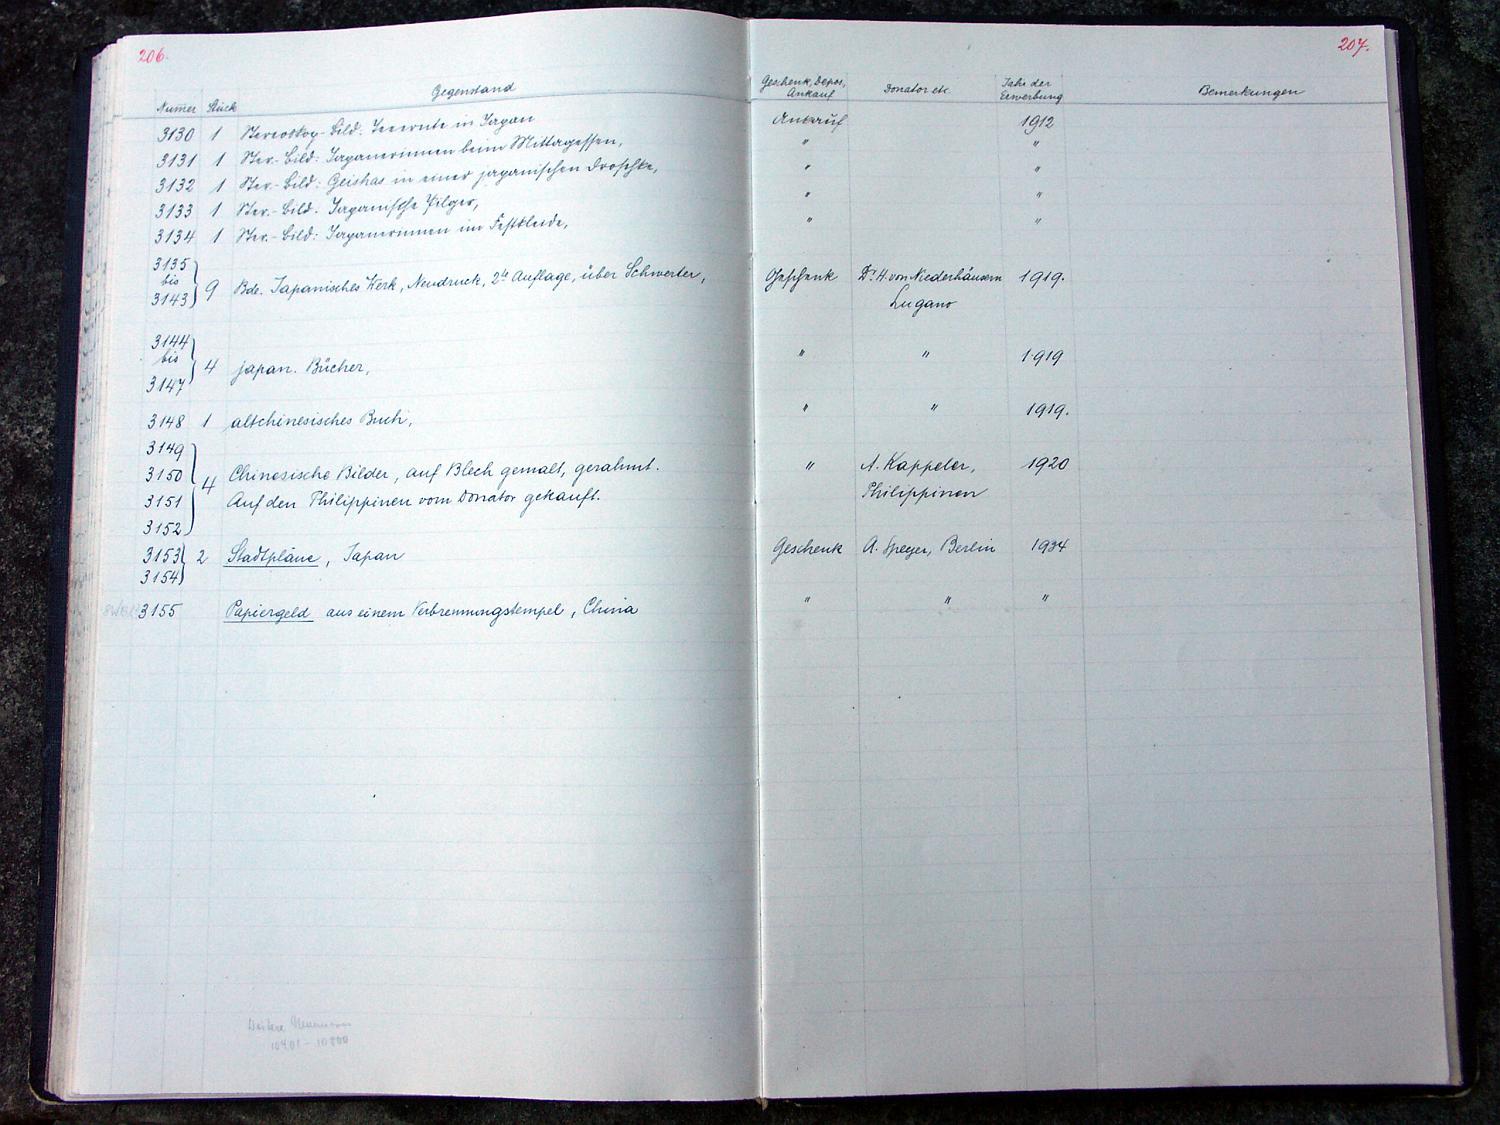 206.
207.
Numer Stück Gegenstand Geschenk, Depos, Ankauf Donator etc. Jahr der Erwerbung Bemerkungen
3130 1 Stereoskop-Bild: Teeernte in Japan Ankauf 1912
3131 1 Ster.-Bild: Japanerinnen beim Mittagessen, " "
3132 1 Ster.-Bild: Geishas in einer japanischen Droschke, " "
3133 1 Ster.-Bild: Japanische Pilger, " "
3134 1 Ster.-Bild: Japanerinnen im Festkleide, " "
3135
bis
3143 9 Bde. Japanisches Werk, Neudruck, 2te Auflage, über Schwerter, Geschenk Dr. H. von Niederhäusern 1919.
Lugano
3144
bis
3147 4 japan. Bücher, " " 1919
3148 1 altchinesisches Buch, " " 1919.
3149
3150 4 Chinesische Bilder, auf Blech gemalt, gerahmt. " A. Kappeler, 1920
3151 Auf den Philippinen vom Donator gekauft. Philippinen
3152
3153 2 Stadtpläne, Japan Geschenk A. Speyer, Berlin 1934
3154
3155 Papiergeld aus einem Verbrennungstempel, China " " "
Weitere Nummern
10401 - 10800